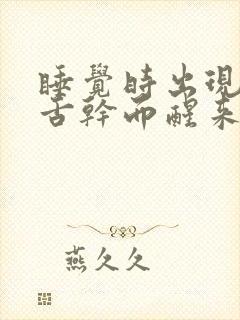 睡覺時出現
舌幹而醒来
燕久久